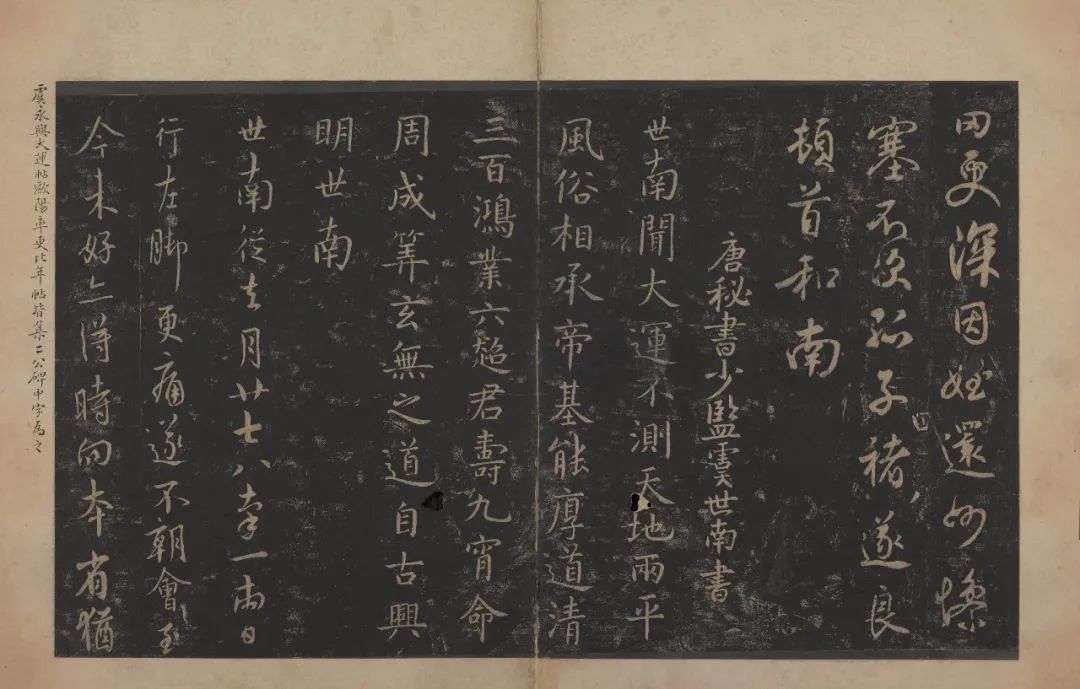 田更深因姪還州慘
塞不次孤子褚遂良
頓首和南
唐秘書少監虞世南書
世南聞大運不測天地兩平
風俗相承帝基能厚道清
三百鴻業六超君壽九宵命
周成筭玄無之道自古興
明世南
世南從去月廿七八率一兩日
行左脚更痛遂不朝會至
今未好亦得時向本省猶
虞永興大運帖歐陽率更比年帖皆集二公碑中字為之